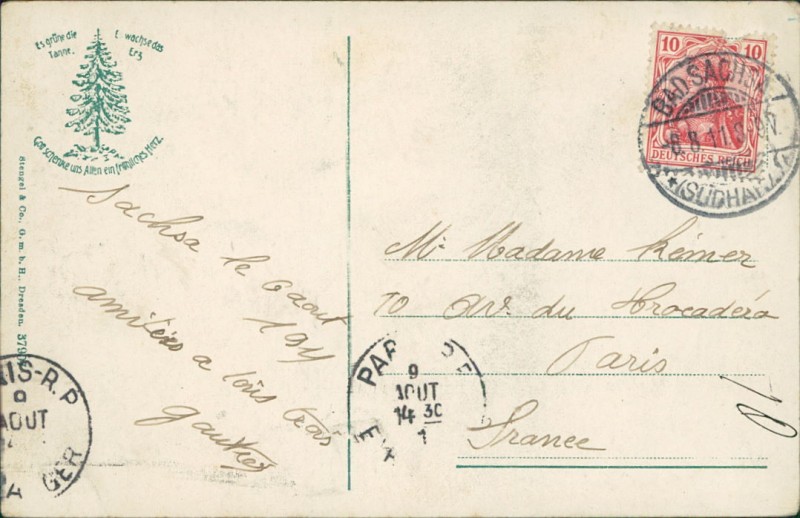 Es grüne die Tanne.
Es wachse das Erz
Gott schenke uns Allen ein fröhliches Herz.
Stengel & Co., G. m. b. H., Dresden. 379
Sachsa le 6 aout
1911
amitiés a tous trois
Gautier
10 10
DEUTSCHES REICH
BAD SACHSA
8.8.11.
* (SÜDHARZ)
Mr Madame Rémer
70 Av. du Trocadéro
Paris
France
PAR
9
AOUT
14 30
1
E
IS-R.P
9
AOUT
GER